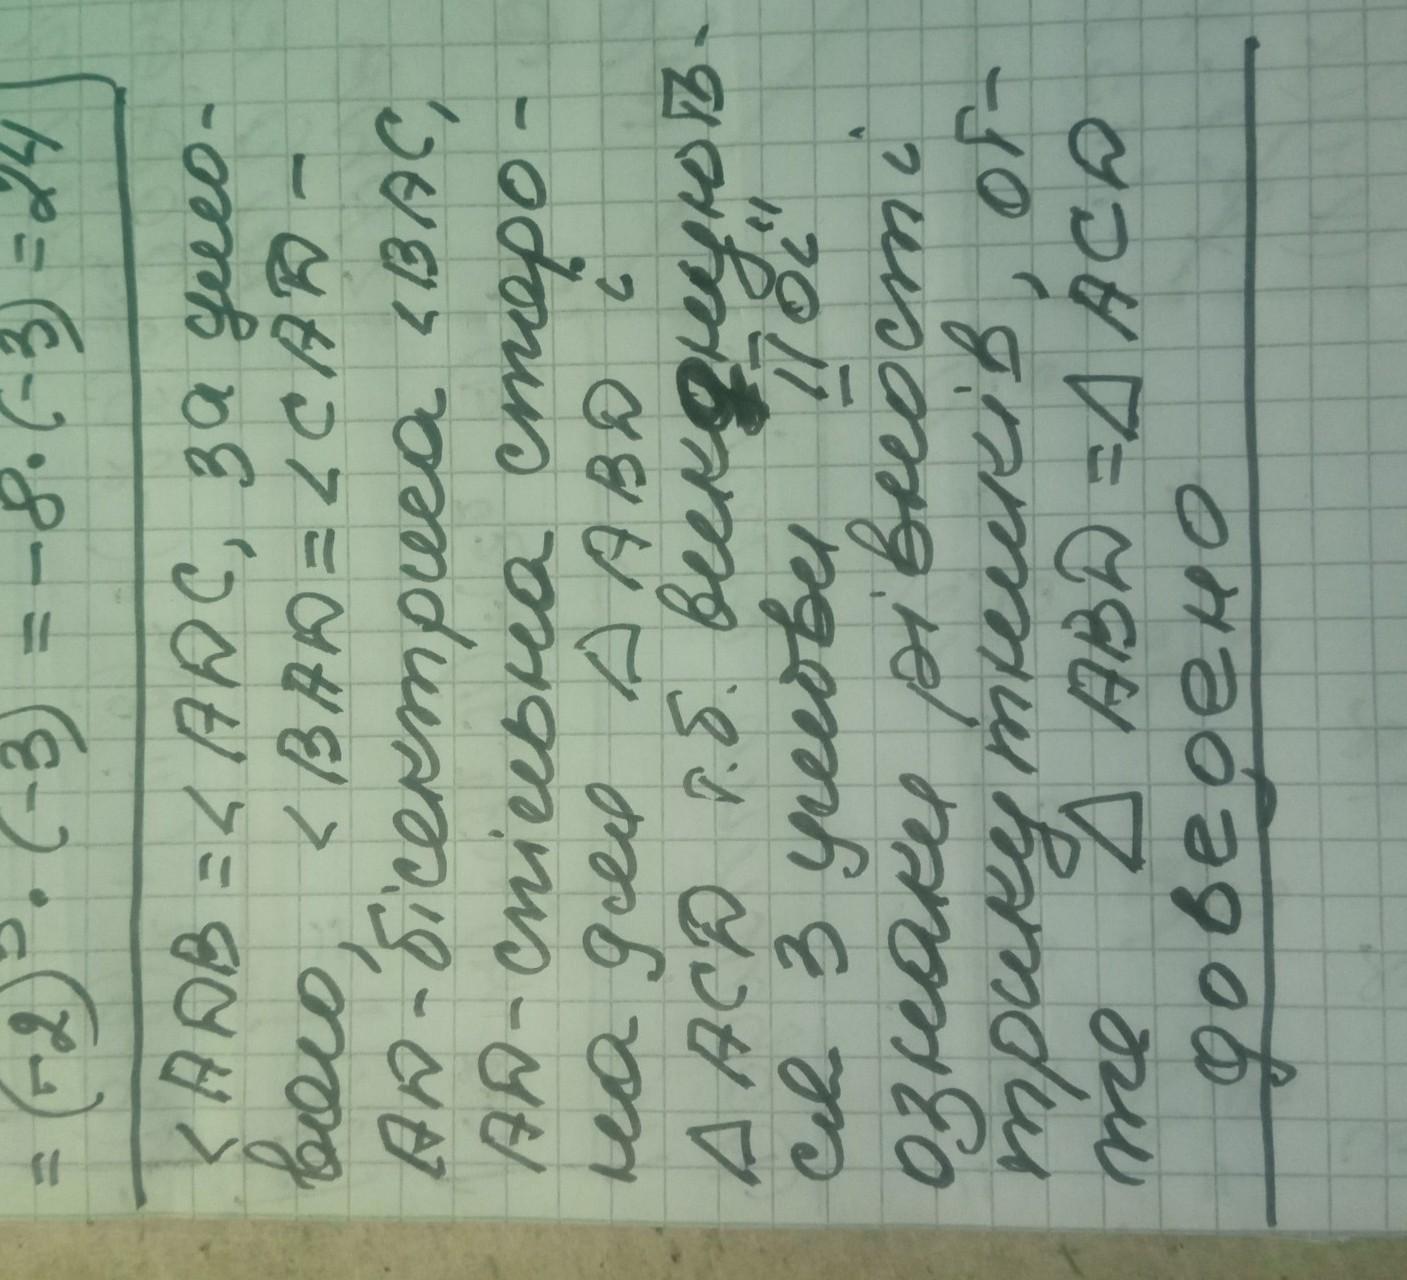 = (-2)³ · (-3) = -8 · (-3) = 24
< ADB = < ADC, за умо-
вою, < BAD = < CAD -
AD - бісектриса < BAC,
AD - спільна сторо-
на для Δ ABD і
Δ ACD т.б. виконують-
ся 3 умови "II ої"
ознаки рівності
трикутників, от-
же Δ ABD = Δ ACD
доведено